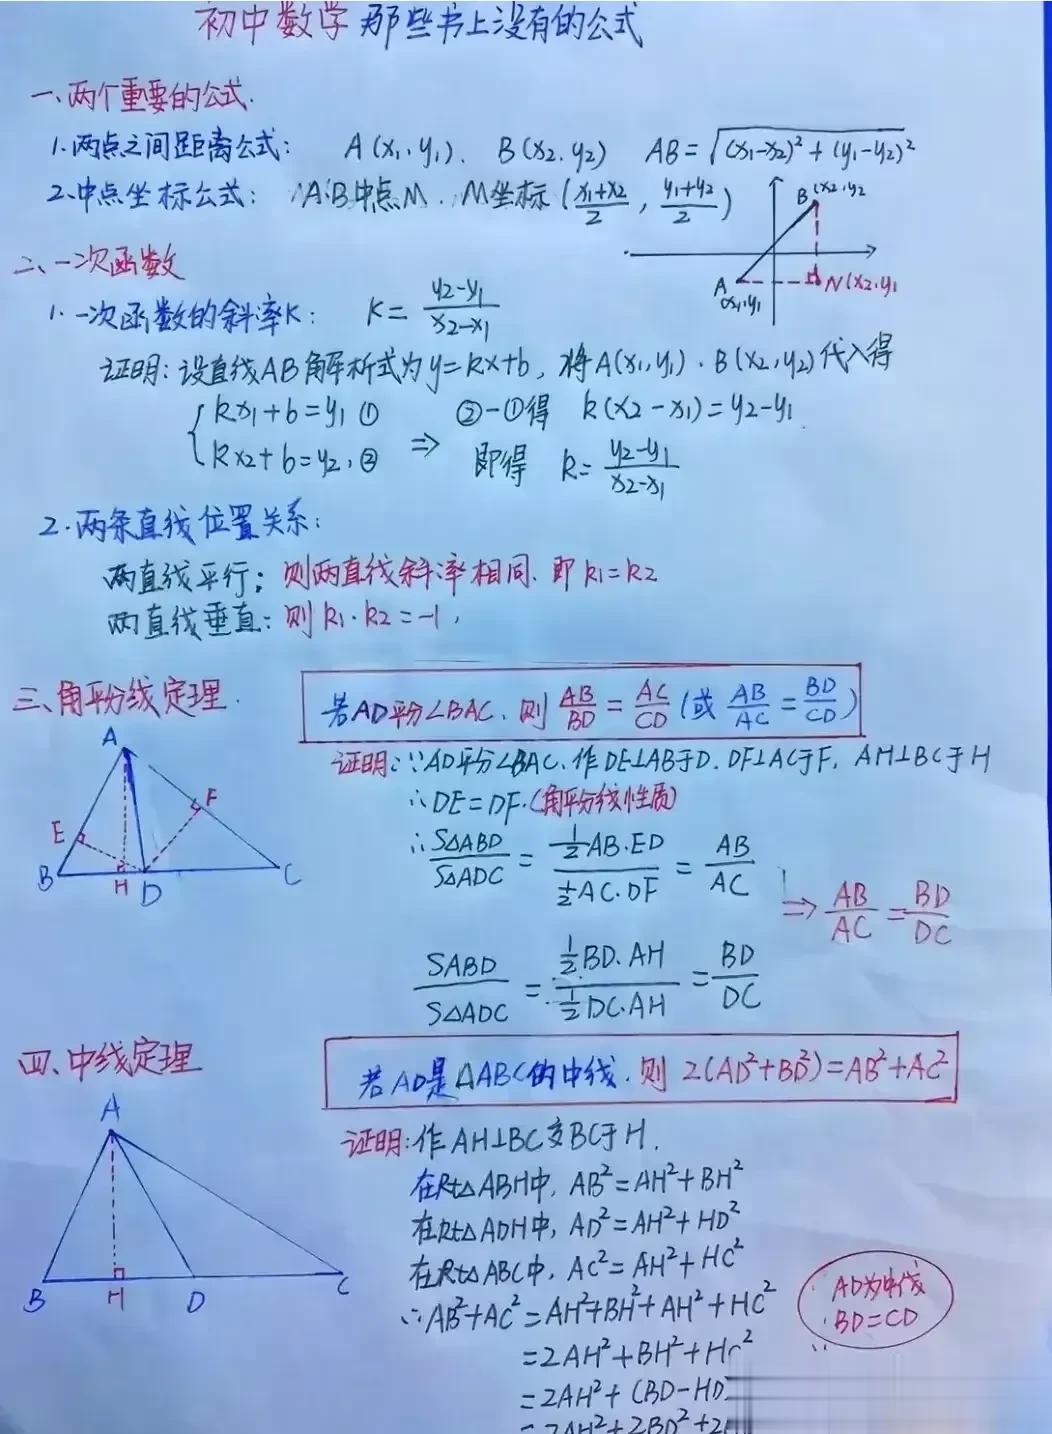 初中数学 那些书上没有的公式
一、两个重要的公式.
1.两点之间距离公式: A(x₁,y₁). B(x₂,y₂) AB=√((x₁-x₂)²+(y₁-y₂)²)
2.中点坐标公式: A.B中点M. M坐标((x₁+x₂)/2, (y₁+y₂)/2)
B(x₂,y₂
A
(x₁,y₁
N(x₂,y₁
二、一次函数
1.一次函数的斜率K: K=(y₂-y₁)/(x₂-x₁)
证明:设直线AB解析式为y=kx+b, 将A(x₁,y₁).B(x₂,y₂)代入得
{kx₁+b=y₁ ① ②-①得 k(x₂-x₁)=y₂-y₁.
kx₂+b=y₂.② ⇒ 即得 k=(y₂-y₁)/(x₂-x₁)
2.两条直线位置关系:
两直线平行; 则两直线斜率相同.即k₁=k₂
两直线垂直: 则k₁·k₂=-1,
三、角平分线定理.
若AD平分∠BAC.则AB/BD=AC/CD(或AB/AC=BD/CD)
证明:∵AD平分∠BAC.作DE⊥AB于D.DF⊥AC于F, AH⊥BC于H
∴DE=DF.(角平分线性质)
∴S△ABD/S△ADC=(½AB·ED)/(½AC·DF)=AB/AC
⇒AB/AC=BD/DC
SABD/S△ADC=(½BD·AH)/(½DC·AH)=BD/DC
A
F
E
B
H
D
C
四、中线定理
若AD是△ABC的中线.则 2(AD²+BD²)=AB²+AC²
证明:作AH⊥BC交BC于H.
在Rt△ABH中, AB²=AH²+BH²
在Rt△ADH中, AD²=AH²+HD²
在Rt△ABC中, AC²=AH²+HC²
∴AB²+AC²=AH²+BH²+AH²+HC²
=2AH²+BH²+HC²
=2AH²+(BD-HD
=2AH²+2BD²+2
AD为中线
BD=CD
A
B
H
D
C